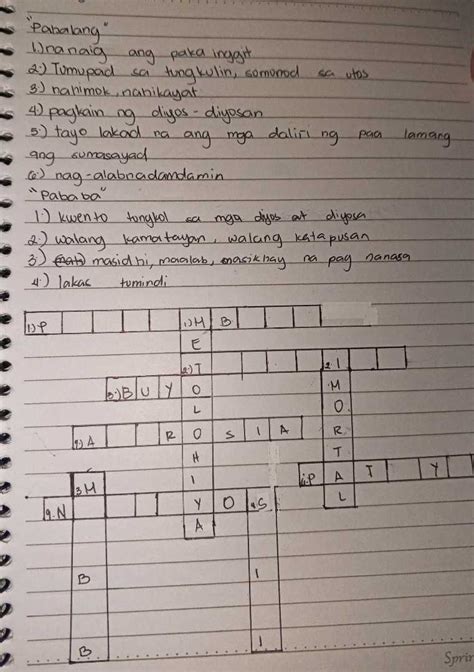 "Pabalang"
1) nanaig ang paka inggit
2.) Tumupad sa tungkulin, somonod sa utos
3) nahimok, nahikayat
4) pagkain ng diyos-diyosan
5) tayo lakad na ang mga daliri ng paa lamang
ang sumasayad
6) nag-alabnadamdamin
"Pababa"
1.) kwento tungkol sa mga diyos at diyosa
2.) walang kamatayan, walang katapusan
3) masidhi, maalab, masikhay na pag nanasa
4.) lakas tumindi
1)P 1)M B
E
2)T 2.I
3)B U Y O M
L O
4)A R O S I A R
H T
I 6P A T Y
3M
9.N Y O 4.S L
A
B I
B I
Sprin